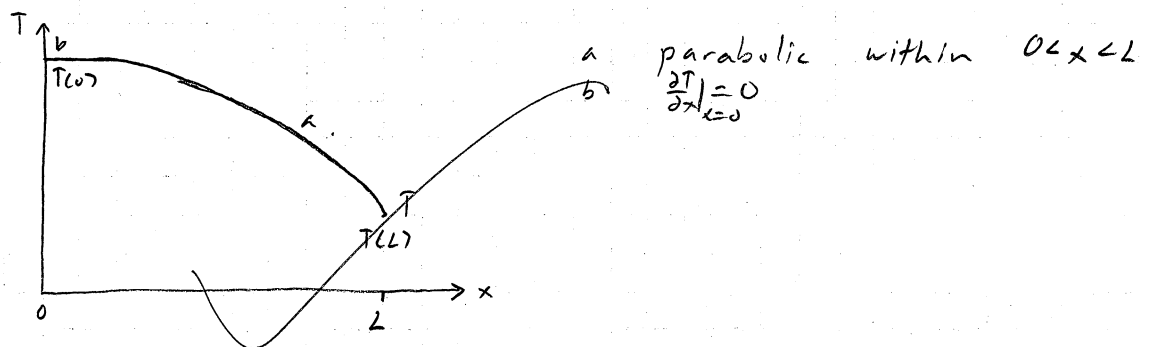 T
b
T(0)
a
T
T(L)
x
0
L
a parabolic within 0<x<L
b ∂T/∂x|x=0 = 0